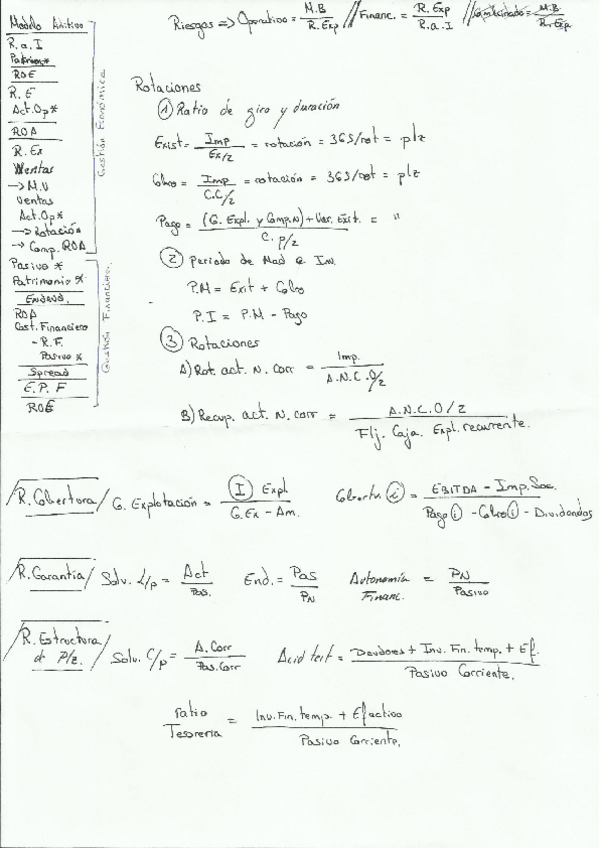 Modelo Aditivo
R.a.I
Patrim*
ROE
R.E
Act.Op*
ROA
R.Ex
Ventas
→ M.V
Ventas
Act.Op*
→ Rotación
→ Comp. ROA
Gestión Económica
Pasivo *
Patrimonio *
Endeud.
ROA
Cost. Financiero
- R.F.
Pasivo *
Spread
E.P.F
ROE
Gestión Financiera.
Riesgos => Operativo = M.B / R.Exp // Financ. = R.Exp / R.a.I // Combinado = M.B / R.Exp
Rotaciones
① Ratio de giro y duración
Exist = Imp / Ex/2 = rotación = 365/rot = plz
Cobro = Imp / C.C/2 = rotación = 365/rot = plz
Pago = (G. Expl. y Comp.N) + Var. Exit. / C.p/2 = "
② Periodo de Mad e Inv.
P.M = Exit + Cobro
P.I = P.M - Pago
③ Rotaciones
A) Rot. act. N. Corr = Imp. / A.N.C.O/2
B) Recup. act. N. corr = A.N.C.O/2 / Flj. Caja. Expl. recurrente.
R. Cobertura / G. Explotación = I Expl / G.Ex - Am. Cobertu. i = EBITDA - Imp.Soc. / Pago i - Cobro i - Dividendos
R. Garantía / Solv. L/p = Act / Pas. End. = Pas / PN Autonomía Financ. = PN / Pasivo
R. Estructura d Plz. / Solv. C/p = A. Corr / Pas. Corr Acid test = Deudores + Inv. Fin. temp. + Ef. / Pasivo Corriente.
Ratio Tesoreria = Inv. Fin. temp. + Efectivo / Pasivo Corriente.